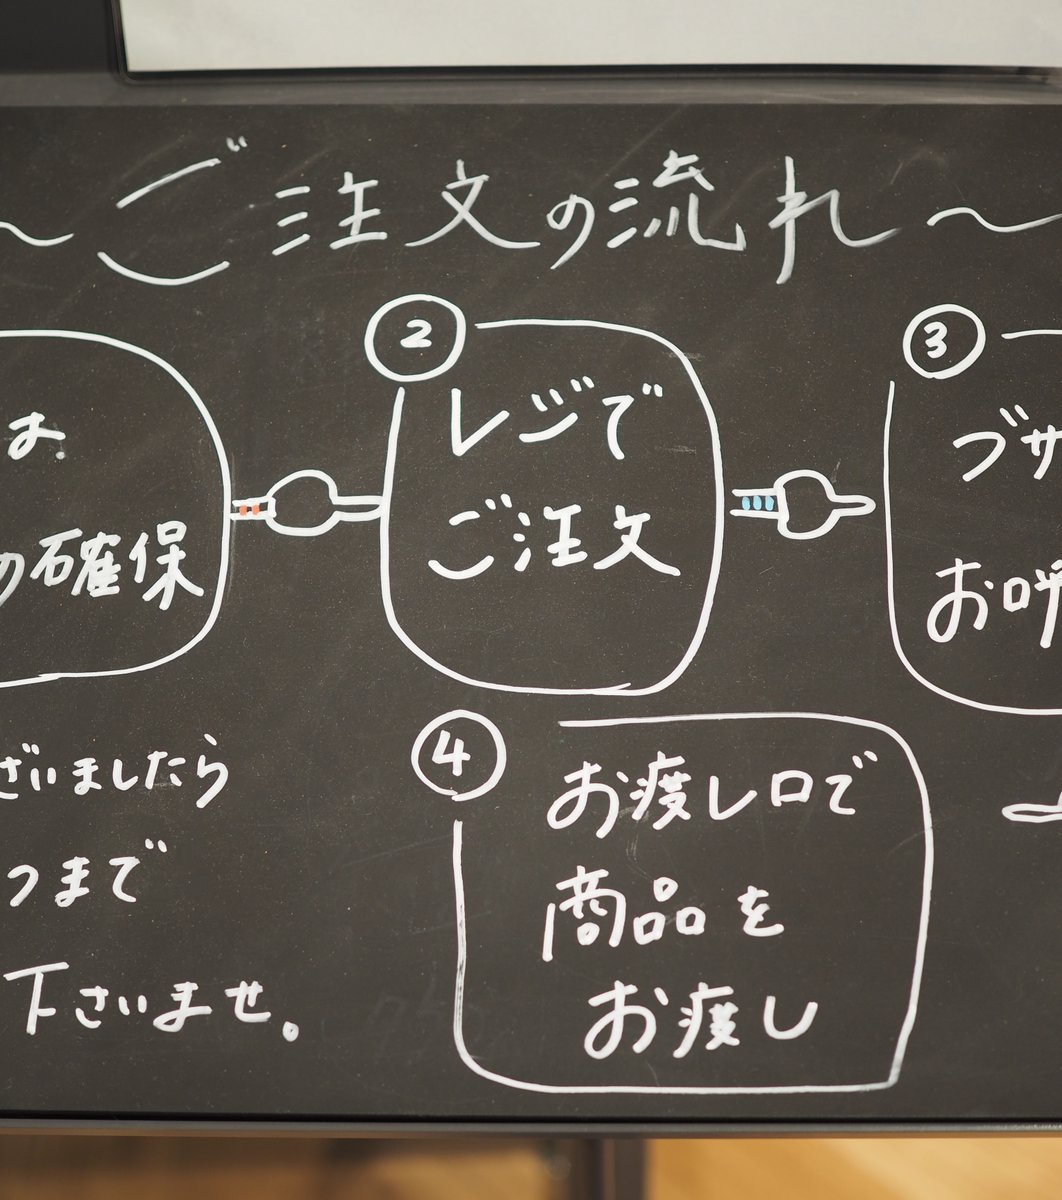 ～ご注文の流れ～
は.
の確保
②
レジで
ご注文
③
ブザ
お呼
④
お渡し口で
商品を
お渡し
ざいましたら
つまで
下さいませ。